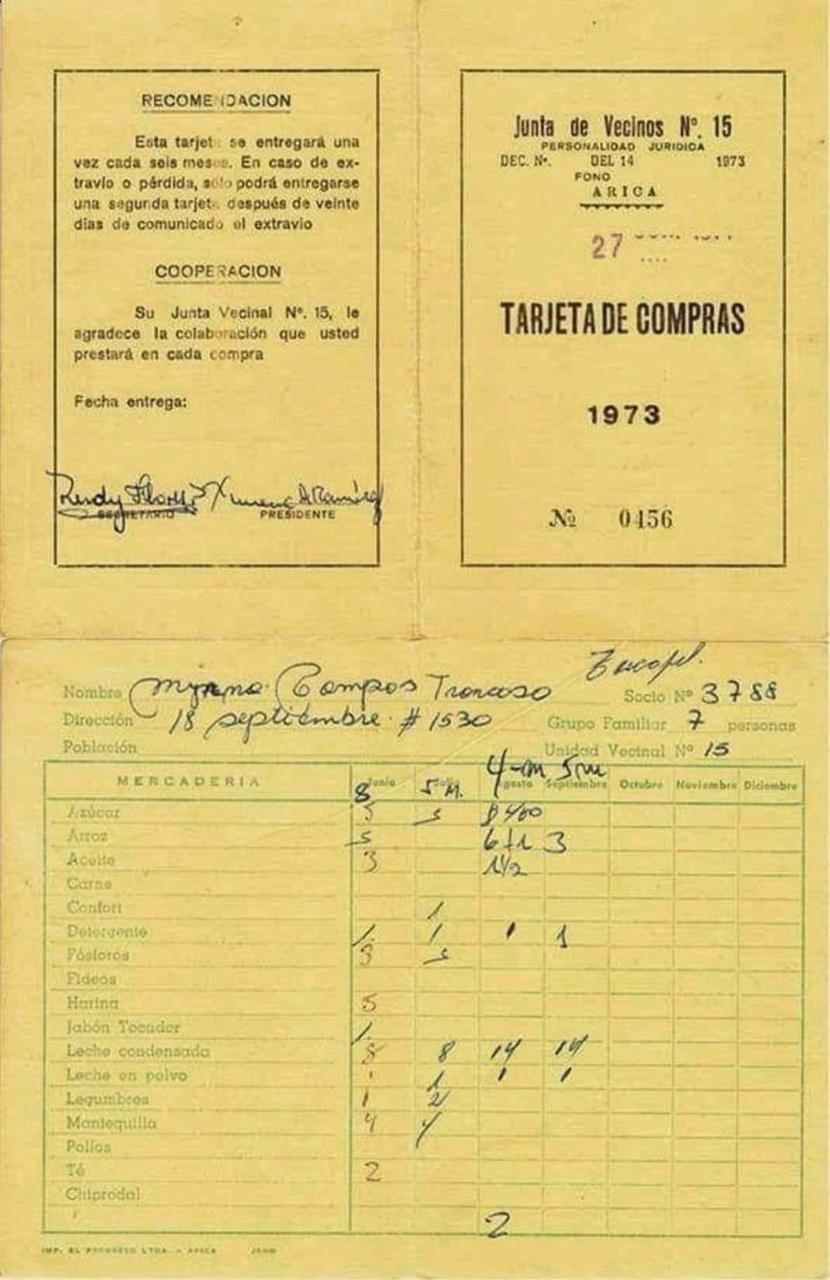 RECOMENDACION
Esta tarjeta se entregará una
vez cada seis meses. En caso de ex-
travío o pérdida, sólo podrá entregarse
una segunda tarjeta después de veinte
días de comunicado el extravío
COOPERACION
Su Junta Vecinal Nº. 15, le
agradece la colaboración que usted
prestará en cada compra
Fecha entrega:
SECRETARIO PRESIDENTE
Junta de Vecinos Nº. 15
PERSONALIDAD JURIDICA
DEC. Nº. DEL 14 1973
FONO
ARICA
27
TARJETA DE COMPRAS
1973
Nº 0456
Nombre Campos Troncoso Socio Nº 3788
Dirección 18 septiembre # 1530 Grupo Familiar 7 personas
Población Unidad Vecinal Nº 15
4-m 5m
MERCADERIA Junio Julio Agosto Septiembre Octubre Noviembre Diciembre
8 5 M.
Azúcar 5 5
Arroz 5 6+1 3
Aceite 3 1 1/2
Carne
Confort 1
Detergente 1. 1 1 1
Fósforos 3 5
Fideos
Harina 5
Jabón Tocador 1.
Leche condensada 8 8 14 14
Leche en polvo 1 1 1 1
Legumbres 1 2
Mantequilla 4 4
Pollos
Té 2
Chiprodal
2
IMP. EL PROGRESO LTDA. - ARICA